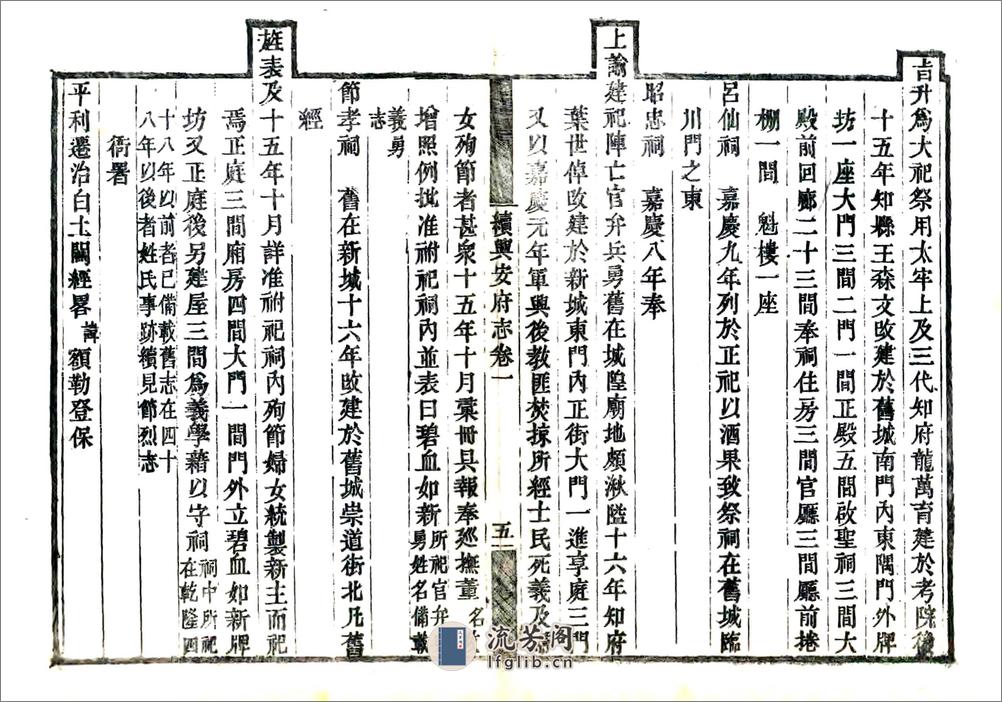 旨升爲大祀祭用太牢上及三代知府龍萬育建於考院後
十五年知縣王森文改建於舊城南門內東隅門外牌
坊一座大門三間二門一間正殿五間啟聖祠三間大
殿前回廊二十三間奉祠住房三間官廳三間廳前捲
棚一間　魁樓一座
呂仙祠　嘉慶九年列於正祀以酒果致祭祠在舊城臨
川門之東
昭忠祠　嘉慶八年奉
上諭建祀陣亡官弁兵勇舊在城隍廟地頗湫隘十六年知府
葉世倬改建於新城東門內正街大門一進享庭三門
又以嘉慶元年軍興後教匪焚掠所經士民死義及婦
續興安府志卷一
五
女殉節者甚衆十五年十月彙冊具報奉廵撫董
增照例批准祔祀祠內並表曰碧血如新所祀官弁
勇姓名備載
義勇
志
節孝祠　舊在新城十六年改建於舊城崇道街北凡舊
經
旌表及十五年十月詳准祔祀祠內殉節婦女統製新主而祀
焉正庭三間廂房四間大門一間門外立碧血如新牌
坊又正庭後另建屋三間爲義學藉以守祠祠中所祀
在乾隆四
十八年以前者已備載舊志在四十
八年以後者姓氏事跡續見節烈志
衙署
平利遷治白土關經畧諱額勒登保
流芳閣
lfglib.cn